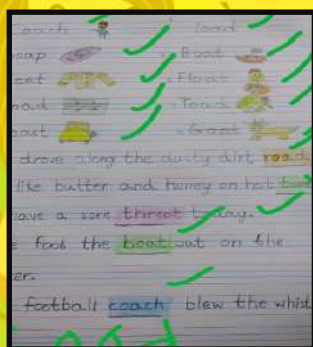 oach load
oap Boat
oat Float
oad Toad
oast Goat
drove along the dusty dirt road
like butter and honey on hot toast
have a sore throat today.
e took the boat out on the
er.
football coach blew the whist